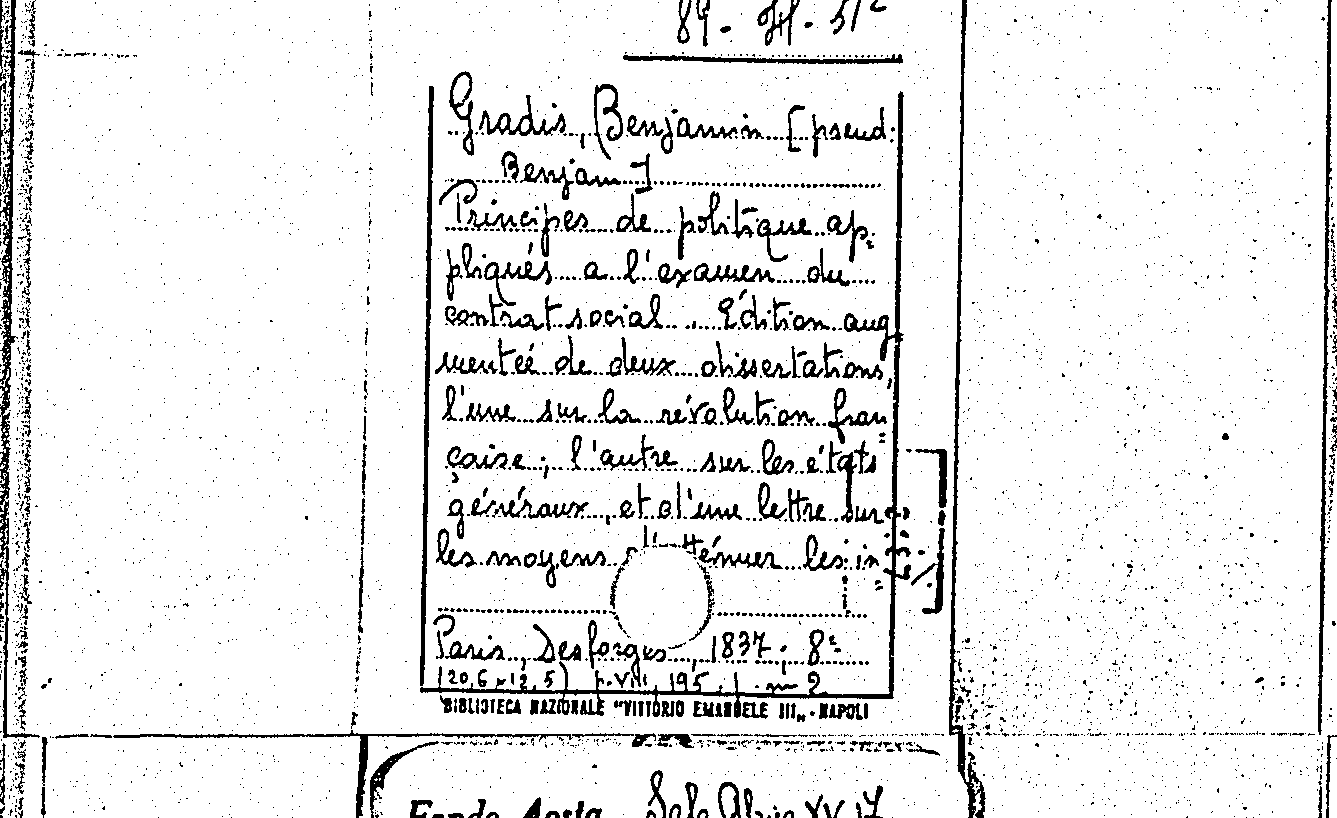 Gradis, Benjamin [pseud:
Benjam]
Principes de politique ap=
pliqués a l'examen du
contrat social. Edition aug
mentée de deux dissertations,
l'une sur la révolution fran=
çaise; l'autre sur les états
généraux, et d'une lettre sur
les moyens d'atténuer les in=
Paris, Desforges, 1837; 8º
(20,6 x 12,5) p. VIII, 195,
BIBLIOTECA NAZIONALE "VITTORIO EMANUELE III„ - NAPOLI
Fondo Aosta